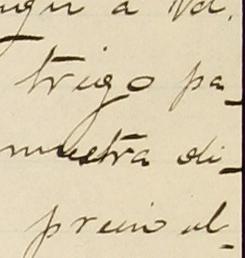 a Vd.
trigo pa-
muestra di-
precio al-